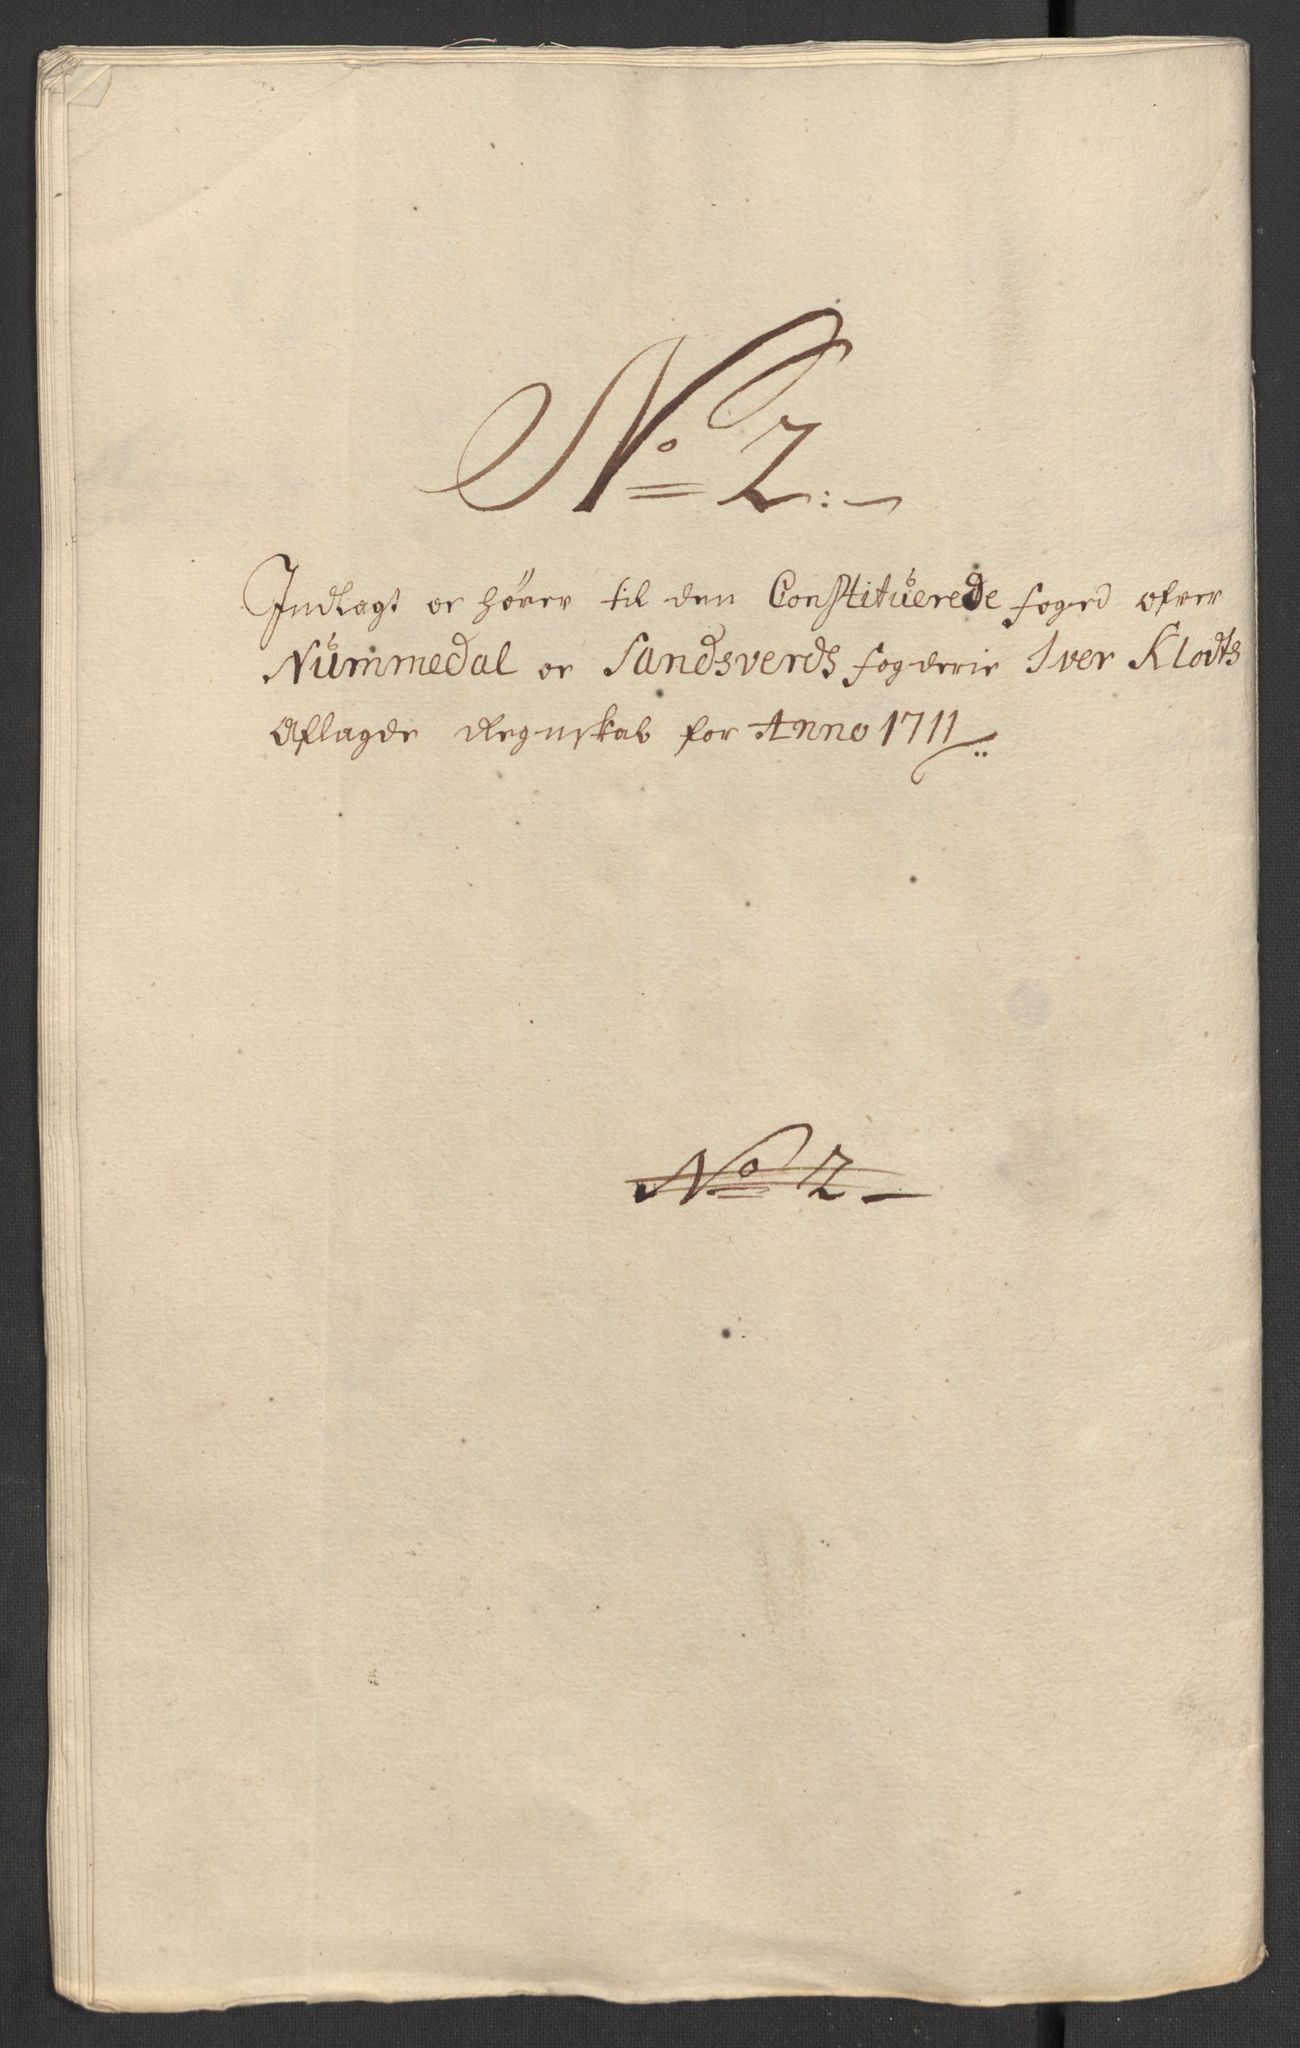 No 2:
Indlagt oc hører til den Constituerede foged ofver
Nummedal oc Sandsverds fogderie Iver Klodts
Aflagde Regnskab for Anno 1711
No 2